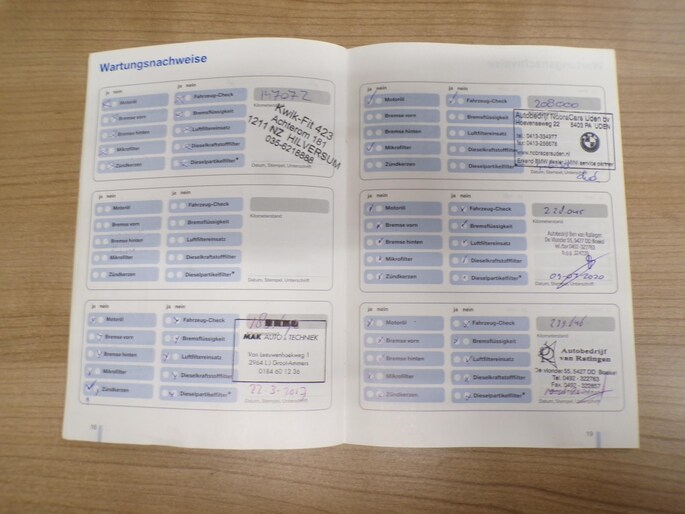 Wartungsnachweise
ja nein
ja nein
Motoröl
Fahrzeug-Check
147072
Bremse vorn
Bremsflüssigkeit
Kilometerstand
Bremse hinten
Luftfiltereinsatz
Mikrofilter
Dieselkraftstofffilter
Zündkerzen
Dieselpartikelfilter*
Kwik-Fit 423
Achterom 181
1211 NZ HILVERSUM
035-6218888
ja nein
ja nein
Motoröl
Fahrzeug-Check
Bremse vorn
Bremsflüssigkeit
Kilometerstand
Bremse hinten
Luftfiltereinsatz
Mikrofilter
Dieselkraftstofffilter
Zündkerzen
Dieselpartikelfilter*
Datum, Stempel, Unterschrift
ja nein
ja nein
Motoröl
Fahrzeug-Check
Bremse vorn
Bremsflüssigkeit
Bremse hinten
Luftfiltereinsatz
Mikrofilter
Dieselkraftstofffilter
Zündkerzen
Dieselpartikelfilter*
MAK AUTO & TECHNIEK
Van Leeuwenhoekweg 1
0184 60 12 36
22-3-2017
Datum, Stempel, Unterschrift
18
ja nein
ja nein
Motoröl
Fahrzeug-Check
208000
Bremse vorn
Bremsflüssigkeit
Kilometerstand
Bremse hinten
Luftfiltereinsatz
Mikrofilter
Dieselkraftstofffilter
Zündkerzen
Dieselpartikelfilter*
Autobedrijf NobraCars Uden bv
5405 PA UDEN
tel. 0413-334977
www.nobracarsuden.nl
BMW
Datum, Stempel, Unterschrift
ja nein
ja nein
Motoröl
Fahrzeug-Check
Bremse vorn
Bremsflüssigkeit
Bremse hinten
Luftfiltereinsatz
Mikrofilter
Dieselkraftstofffilter
Zündkerzen
Dieselpartikelfilter*
Autobedrijf Ton van Ratingen
De Vlonder 55, 5427 DD Boekel
Datum, Stempel, Unterschrift
ja nein
ja nein
Motoröl
Fahrzeug-Check
Bremse vorn
Bremsflüssigkeit
Kilometerstand
Bremse hinten
Luftfiltereinsatz
Mikrofilter
Dieselkraftstofffilter
Zündkerzen
Dieselpartikelfilter*
Autobedrijf
van Ratingen
De Vlonder 55, 5427 DD Boekel
Tel. 0492 - 322763
Datum, Stempel, Unterschrift
19